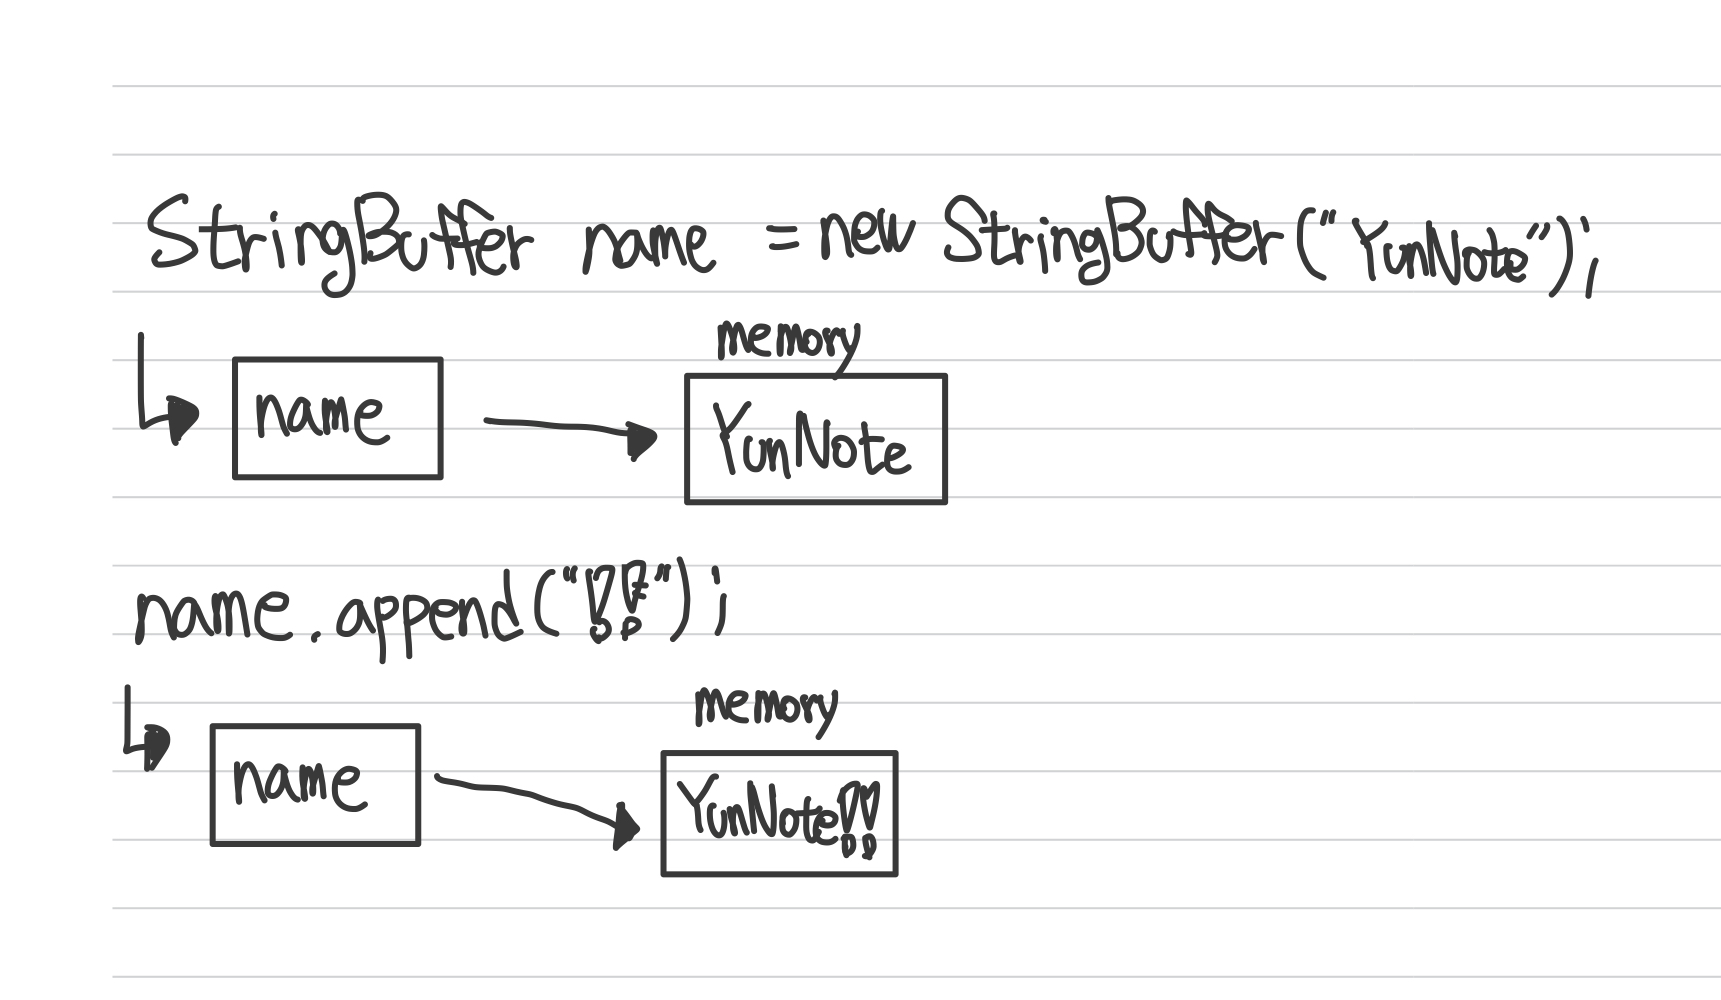 StringBuffer name = new StringBuffer("YunNote");
memory
name
YunNote
name.append("!!");
memory
name
YunNote!!